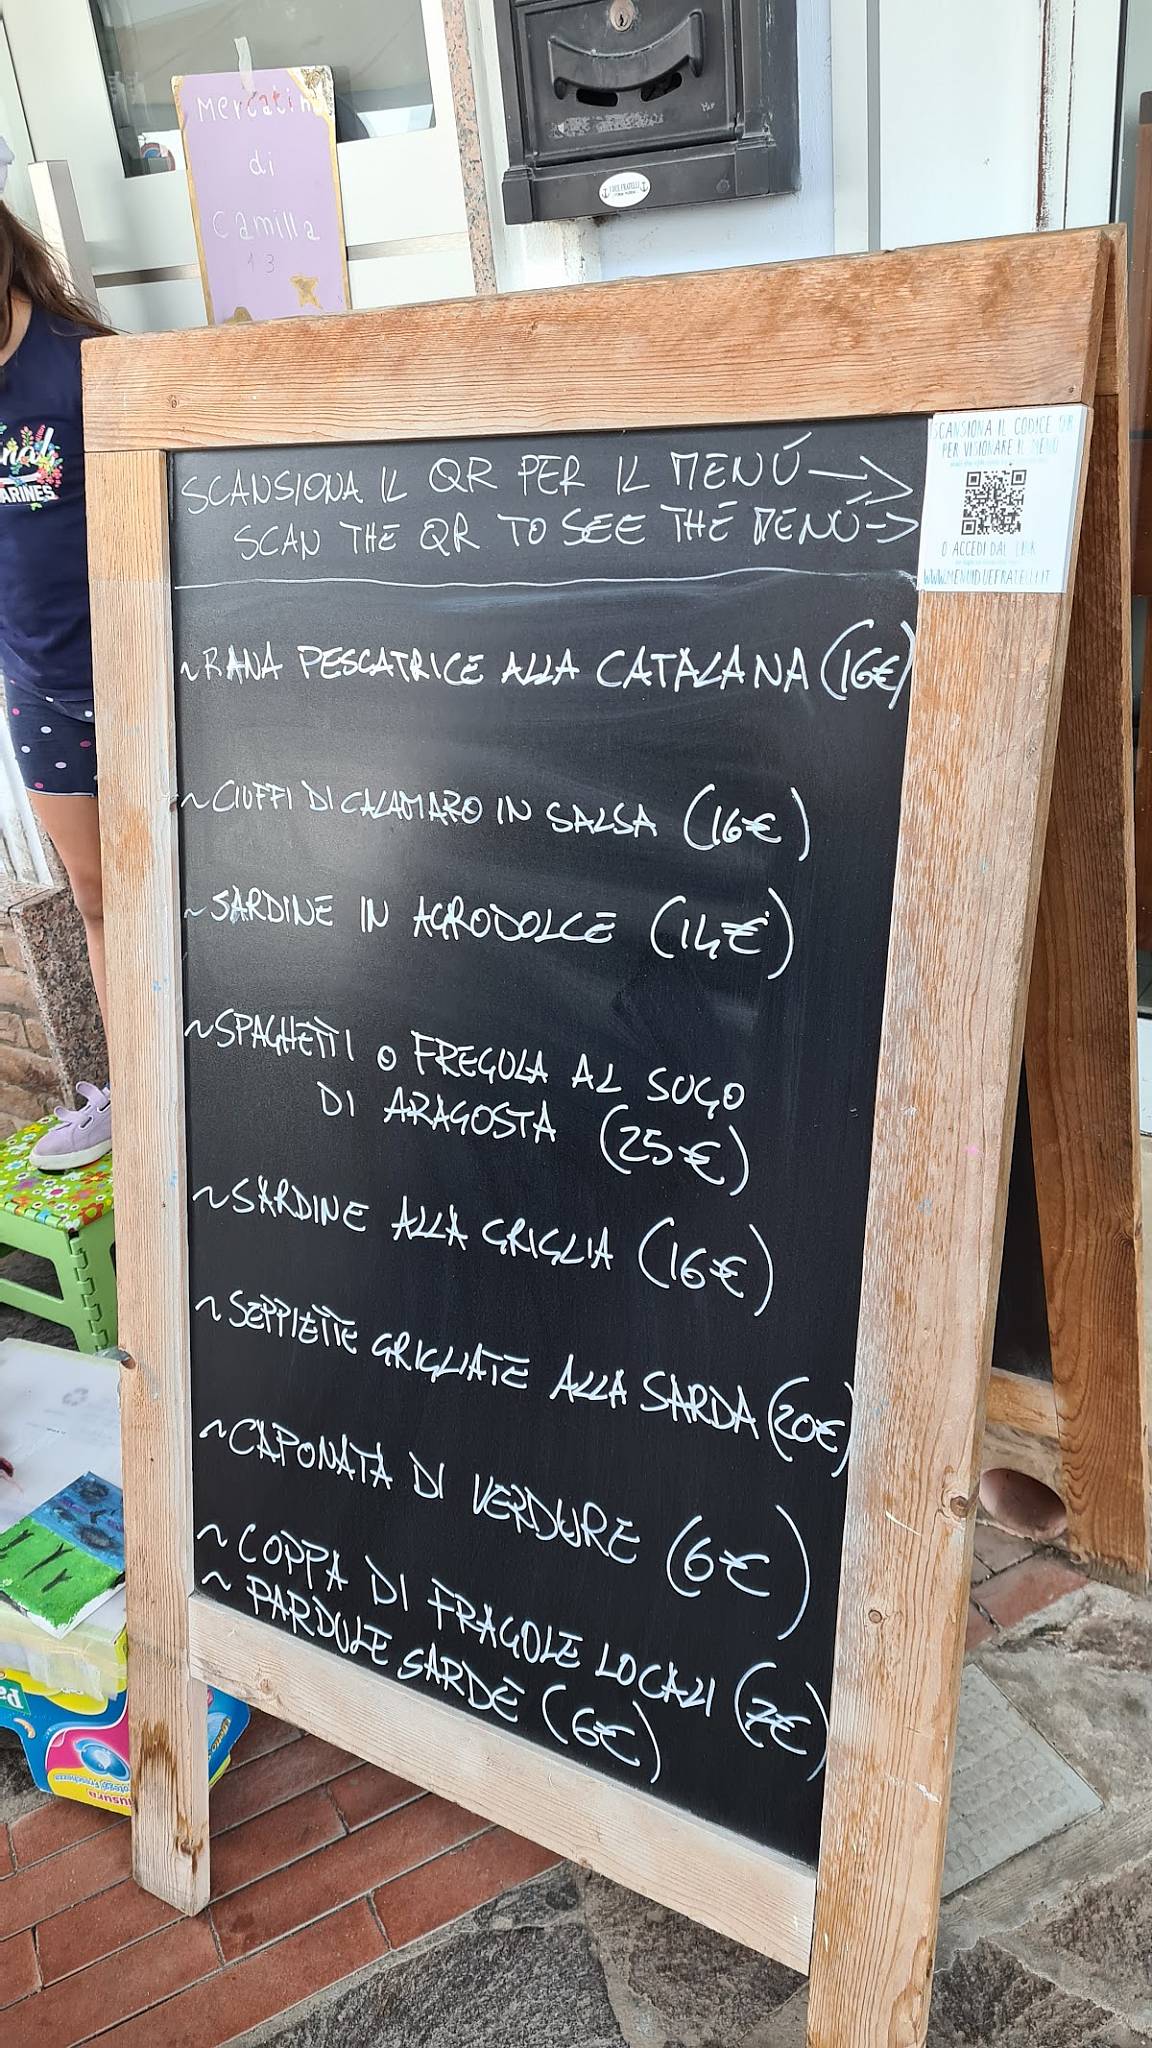 Mercatin
di
Camilla
13
I DUE FRATELLI
SCANSIONA IL QR PER IL MENÚ
SCAN THE QR TO SEE THE MENÚ
SCANSIONA IL CODICE QR
PER VISIONARE IL MENÙ
O ACCEDI DAL LINK
WWW.MENUIDUEFRATELLI.IT
~RANA PESCATRICE ALLA CATALANA (16€)
~CIUFFI DI CALAMARO IN SALSA (16€)
~SARDINE IN AGRODOLCE (14€)
~SPAGHETTI O FREGULA AL SUGO
DI ARAGOSTA (25€)
~SARDINE ALLA GRIGLIA (16€)
~SEPPIETTE GRIGLIATE ALLA SARDA (20€)
~CAPONATA DI VERDURE (6€)
~COPPA DI FRAGOLE LOCALI (7€)
~PARDULE SARDE (6€)
ARINES